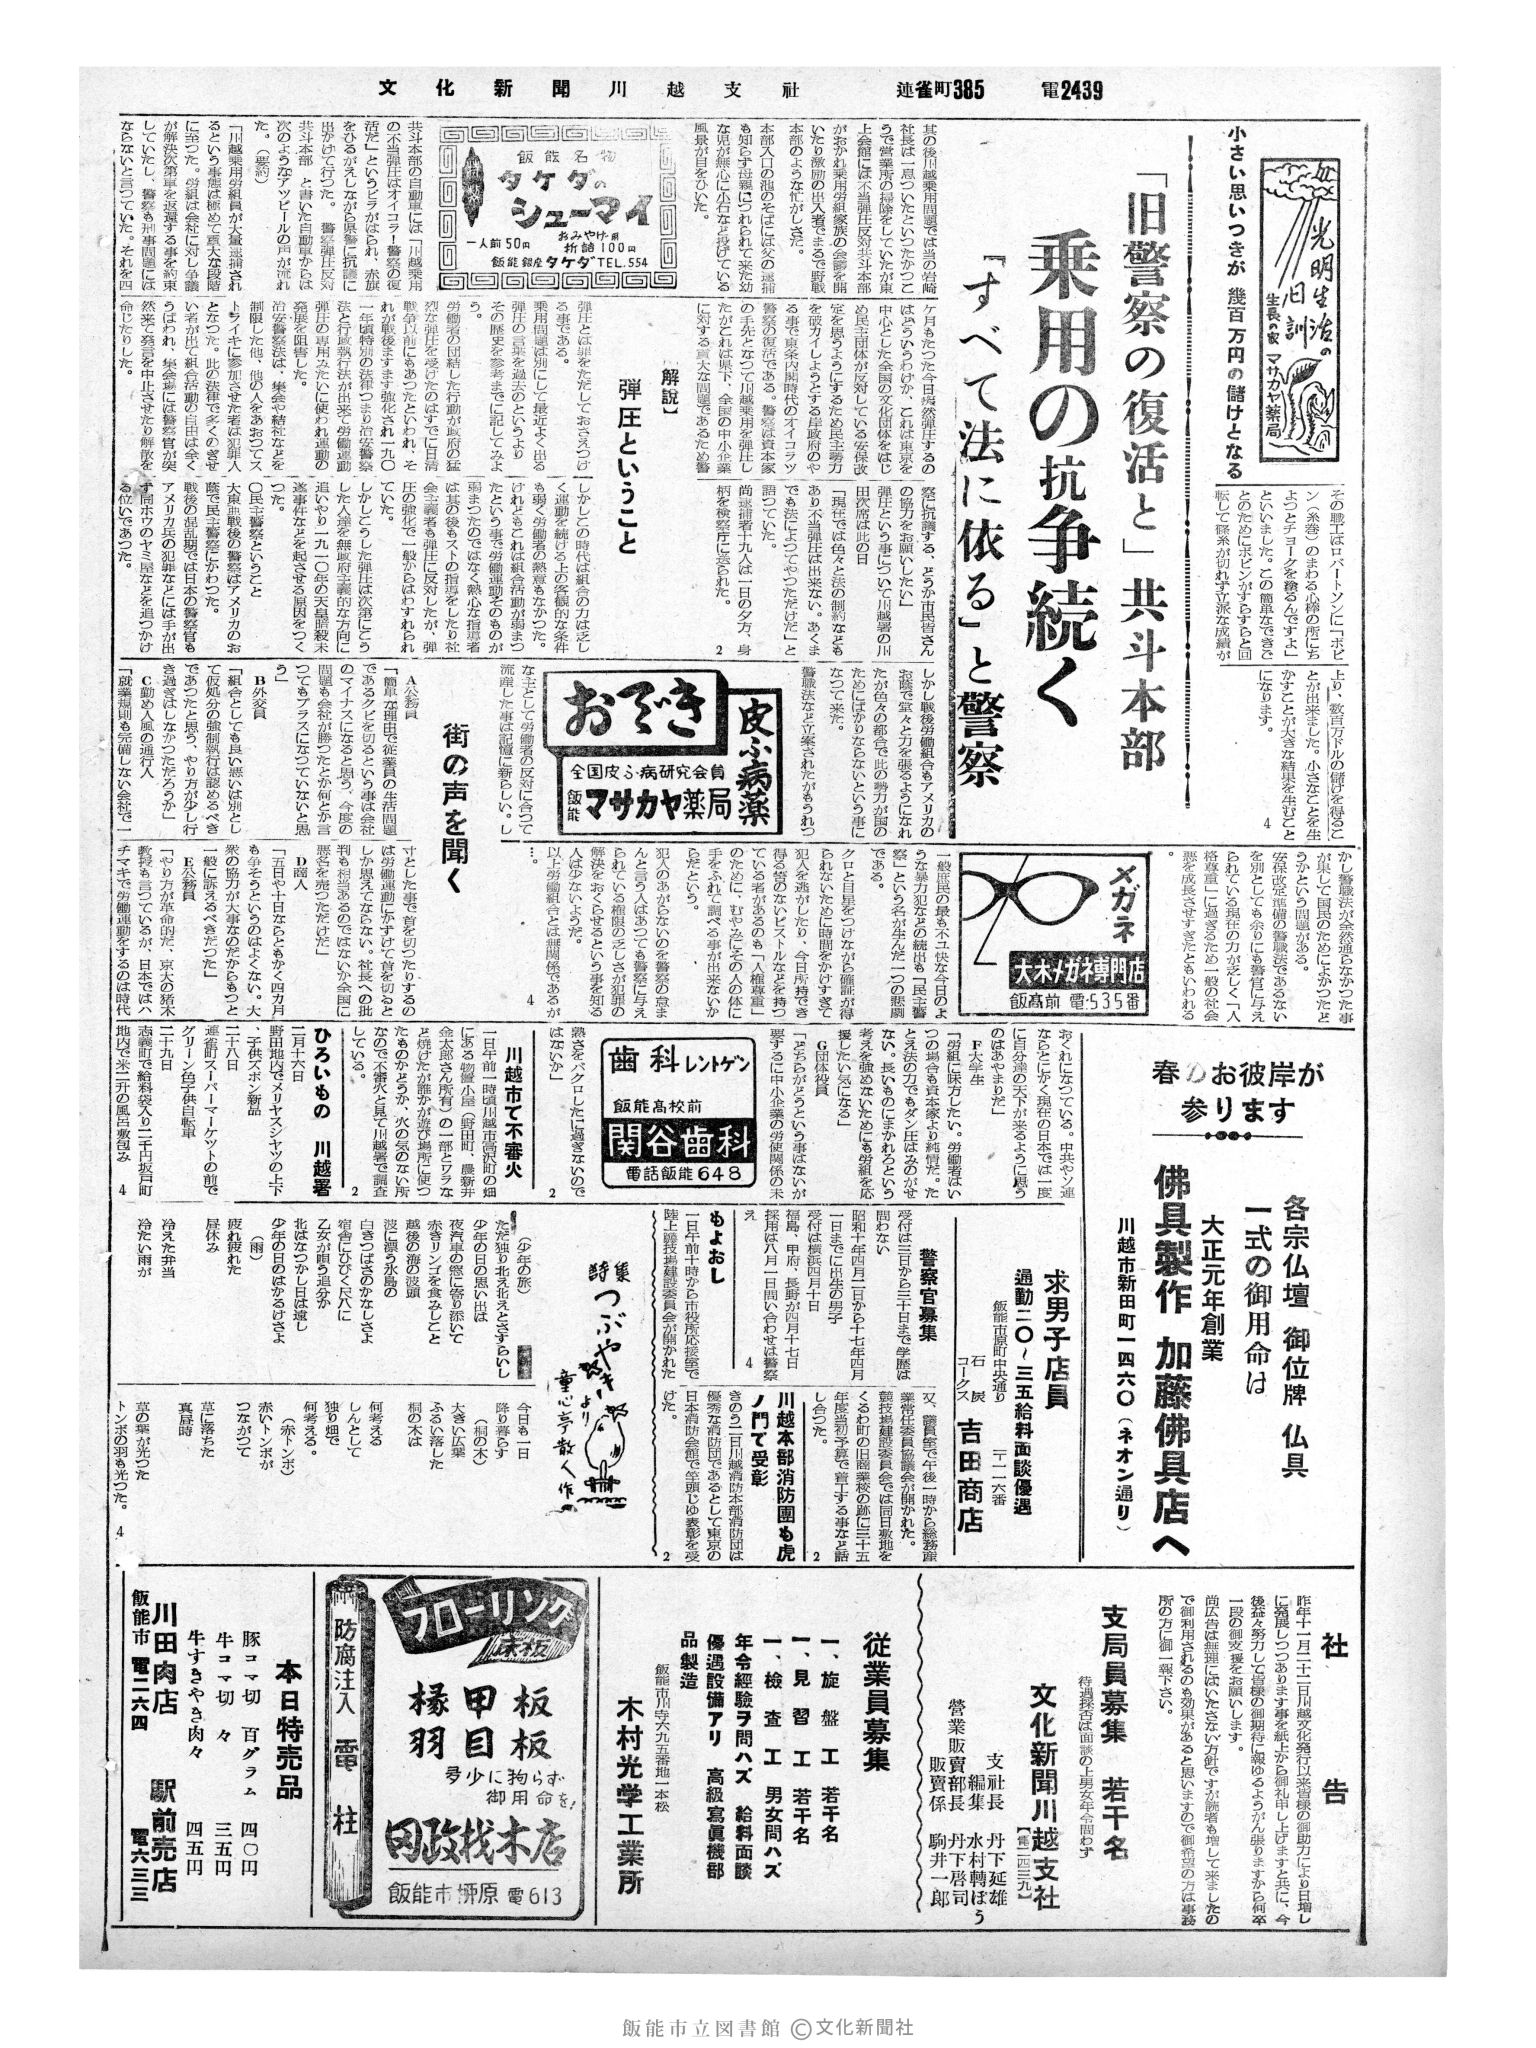 文化新聞川越支社 連雀町385 電2439
光明生活の旧訓
生長の家 マサカヤ薬局
小さい思いつきが 幾百万円の儲けとなる
その職工はロバートソンに「ボビ
ン(糸巻)のまわる心棒の所にち
よつとチョークを塗るんですよ」
といいました。この簡単なできご
とのためにボビンがすらすらと回
転して篠糸が切れず立派な成績が
上り、数百万ドルの儲けを得るこ
とが出来ました。小さなことを生
かすことが大きな結果を生むこと
になります。 4
「旧警察の復活と」共斗本部
乗用の抗争続く
『すべて法に依る』と警察
其の後川越乗用問題では当の岩崎
社長は一息ついたといつたかつこ
うで営業所の掃除をしていたが東
上会館には不当弾圧反対共斗本部
がおかれ乗用労組家族の会議を開
いたり激励の出入者でまるで野戦
本部のような忙がしさだ。
本部入口の池のそばには父の逮捕
も知らず母親につれられて来た幼
な児が無心に小石など投げている
風景が目をひいた。
飯能名物
タケダの
シューマイ
一人前50円 おみやげ用折詰100円
飯能銀座タケダTEL.554
共斗本部の自動車には「川越乗用
の不当弾圧はオイコラー警察の復
活だ」というビラがはられ、赤旗
をひるがえしながら県警に抗議に
出かけて行つた。 警察弾圧反対
共斗本部 と書いた自動車からは
次のようなアツピールの声が流れ
た。(要約)
「川越乗用労組員が大量逮捕され
るという事態は極めて重大な段階
に至つた。労組は会社に対し争議
が解決次第車を返還する事を約束
していたし、警察も刑事問題には
ならないと言つていた。それを四
ケ月もたつた今日突然弾圧するの
はどういうわけか、これは東京を
中心とした全国の文化団体をはじ
め民主団体が反対している安保改
定を思うようにするため民主勢力
を破カイしようとする岸政府のや
る事で東条内閣時代のオイコラツ
警察の復活である。警察は資本家
の手先となつて川越乗用を弾圧し
たがこれは県下、全国の中小企業
に対する重大な問題であるため警
察に抗議する、どうか市民皆さん
の協力をお願いしたい」
弾圧という事について川越署の川
田次席は此の日
「現在では色々と法の制約なども
あり不当弾圧は出来ない。あくま
でも法によつてやつただけだ」と
語つていた。
尚逮捕者十九人は一日の夕方、身
柄を検察庁に送られた。 2
解説】
弾圧ということ
弾圧とは罪をただしておさえつけ
る事である。
乗用問題は別にして最近よく出る
弾圧の言葉を過去のというより
その歴史を参考までに記してみよ
う。
労働者の団結した行動が政府の猛
烈な弾圧を受けたのはすでに日清
戦争以前にもあつたといわれ、そ
れが戦後ますます強化され一九〇
一年頃特別の法律つまり治安警察
法と行政執行法が出来て労働運動
弾圧の専用みたいに使われ運動の
発展を阻害した。
治安警察法は、集会や結社などを
制限した他、他の人をあおつてス
トライキに参加させた者は犯罪人
となつた。此の法律で多くのぎせ
い者が出て組合活動の自由は全く
うばわれ、集会場には警察官が突
然来て発言を中止させたり解散を
命じたりした。
しかしこの時代は組合の力は乏し
く運動を続ける上の客観的な条件
も弱く労働者の熱意もなかつた。
けれどもこれは組合活動が弱まつ
たという事で労働運動そのものが
弱まつたのではなく熱心な指導者
は其の後もストの指導をしたり社
会主義者も弾圧に反対したが、弾
圧の強化で一般からはわすれられ
ていた。
しかしこうした弾圧は次第にこう
した人達を無政府主義的な方向に
追いやり一九一〇年の天皇暗殺未
遂事件などを起させる原因をつく
つた。
〇民主警察ということ
大東亜戦後の警察はアメリカのお
蔭で民主警察にかわつた。
戦後の混乱期では日本の警察官も
アメリカ兵の犯罪などには手が出
ず同ホウのヤミ屋などを追つかけ
る位いであつた。
しかし戦後労働組合もアメリカの
お蔭で堂々と力を張るようになれ
たが色々の都合で此の勢力が国の
ためにばかりならないという事に
なつて来た。
警職法など立案されたがもうれつ
な主として労働者の反対に合つて
流産した事は記憶に新らしい。し
かし警職法が全然通らなかつた事
が果して国民のためによかつたと
うかという問題がある。
安保改定準備の警職法であるない
を別としても余りにも警官に与え
られている現在の力が乏しく「人
格尊重」に過ぎるため一般の社会
悪を成長させすぎたともいわれる
。
一般庶民の最も不ユ快な今日のよ
うな暴力犯などの続出も「民主警
察」という名が生んだ一つの悲劇
である。
クロと目星をつけながら確証が得
られないために時間をかけすぎて
犯人を逃がしたり、今日所持でき
得る筈のないピストルなどを持つ
ている者があるのも「人権尊重」
のために、むやみにその人の体に
手をふれて調べる事が出来ないか
らだという。
犯人のあがらないのを警察の怠ま
んと言う人はあつても警察に与え
られている権限の乏しさが犯罪の
解決をおくらせるという事を知る
人は少ないようだ。
以上労働組合とは無関係であるが
…。 4
皮ふ病薬
おでき
全国皮ふ病研究会員
飯能 マサカヤ薬局
メガネ
大木メガネ専門店
飯高前 電・535番
街の声を聞く
A公務員
「簡単な理由で従業員の生活問題
であるクビを切るという事は会社
のマイナスになると思う、今度の
問題も会社が勝つたとか何とか言
つてもプラスになつていないと思
う」
B外交員
「組合としても良い悪いは別とし
て仮処分の強制執行は認めるべき
であつたと思う、やり方が少し行
き過ぎはしなかつただろうか」
C勤め人風の通行人
「就業規則も完備しない会社で一
寸とした事で首を切つたりするの
は労働運動にかずけて首を切ると
しか思えてならない。社長への批
判も相当あるのではないか全国に
悪名を売つただけだ」
D商人
「五日や十日ならともかく四カ月
も争そうというのはよくない。大
衆の協力が大事なのだからもつと
一般に訴えるべきだつた」
E公務員
「やり方が革命的だ、京大の猪木
教授も言つているが、日本ではハ
チマキで労働運動をするのは時代
おくれになつている。中共やソ連
ならとにかく現在の日本では一度
に自分達の天下が来るように思う
のはあやまりだ」
F大学生
「労組に味方したい。労働者はい
つの場合も資本家より純情だ。た
とえ法の力でもダン圧はみのがせ
ない。長いものにまかれろという
考えを強めないためにも労組を応
援したい気になる」
G団体役員
「どちらがどうという事はないが
要するに中小企業の労使関係の未
熟さをバクロしたに過ぎないので
はないか」 2
歯科レントゲン
飯能高校前
関谷歯科
電話飯能648
川越市で不審火
一日午前一時頃川越市高沢町の畑
にある物置小屋(野田町、農新井
金太郎さん所有)の一部とワラな
ど焼けたが誰かが遊び場所に使つ
たものかどうか、火の気のない所
なので不審火と見て川越署で調査
している。 2
ひろいもの 川越署
二月十六日
野田地内でメリヤスシヤツの上下
、子供ズボン新品
二十八日
連雀町スーパーマーケツトの前で
グリーン色子供自転車
二十九日
志義町で給料袋入り二千円坂戸町
地内で米二升の風呂敷包み 4
春のお彼岸が
参ります
各宗仏壇 御位牌 仏具
一式の御用命は
大正元年創業
佛具製作 加藤佛具店へ
川越市新田町一四六〇(ネオン通り)
求男子店員
通勤二〇〜三五給料面談優遇
飯能市原町中央通り 〒一一六番
石炭 コークス 吉田商店
警察官募集
受付は三日から三十日まで学歴は
問わない
昭和十年四月二日から十七年四月
一日までに出生の男子
受付は横浜四月十日
福島、甲府、長野が四月十七日
採用は八月一日問い合わせは警察
え 4
もよおし
一日午前十時から市役所応援室で
陸上競技場建設委員会が開かれた
又、議員室で午後一時から総務産
業常任委員協議会が開かれた。
競技場建設委員会では同日敷地を
くるわ町の旧商業校の跡に三十五
年度当初予算で着工する事など話
し合つた。 2
川越本部消防團も虎
ノ門で受彰
きのう二日川越消防本部消防団は
優秀な消防団であるとして東京の
日本消防会館で竿頭じゆ表彰を受
けた。 2
詩集
つぶやきより
童心亭散人作
(少年の旅)
ただ独り北え北えとさすらいし
少年の日の思い出は
夜汽車の窓に寄り添いて
赤きリンゴを食みしこと
越後の海の波頭
波に漂う氷島の
白きつばさのかなしさよ
宿舎にひびく尺八に
乙女が唄う追分か
北はなつかし日は遠し
少年の日のはかるけさよ
(雨)
疲れ疲れた
昼休み
冷えた弁当
冷たい雨が
今日も一日
降り暮らす
(桐の木)
大きい広葉
ふるい落した
桐の木は
何考える
しんとして
独り畑で
何考える。
(赤トンボ)
赤いトンボが
つながつて
草に落ちた
真昼時
草の葉が光つた
トンボの羽も光つた。 4
社告
昨年十一月二十二日川越文化発行以来皆様の御助力により日増し
に発展しつつあります事を紙上から御礼申し上げますと共に、今
後益々努力して皆様の御期待に報ゆるようがん張りますから何卒
一段の御支援をお願いします。
尚広告は無理にはいたさない方針ですが読者も増して来ましたの
で御利用されるのも効果があると思いますので御希望の方は事務
所の方に御一報下さい。
支局員募集 若干名
待遇採否は面談の上男女年令問わず
文化新聞川越支社
【電二四三九】
支社長 丹下延雄
編集 水村轉ぼう
営業販賣部長 丹下啓司
販賣係 駒井一郎
従業員募集
一、旋盤工 若干名
一、見習工 若干名
一、検査工 男女問ハズ
年令経驗ヲ問ハズ 給料面談
優遇設備アリ 高級寫眞機部
品製造
飯能市川寺六九五番地一本松
木村光学工業所
フローリング床板
椽甲板
羽目板
多少に拘らず
御用命を!
岡政材木店
飯能市柳原電613
防腐注入 電柱
本日特売品
豚コマ切 百グラム 四〇円
牛コマ切々 三五円
牛すきやき肉々 四五円
川田肉店 駅前売店
飯能市 電二六四 電六三三
飯能市立図書館 ©文化新聞社